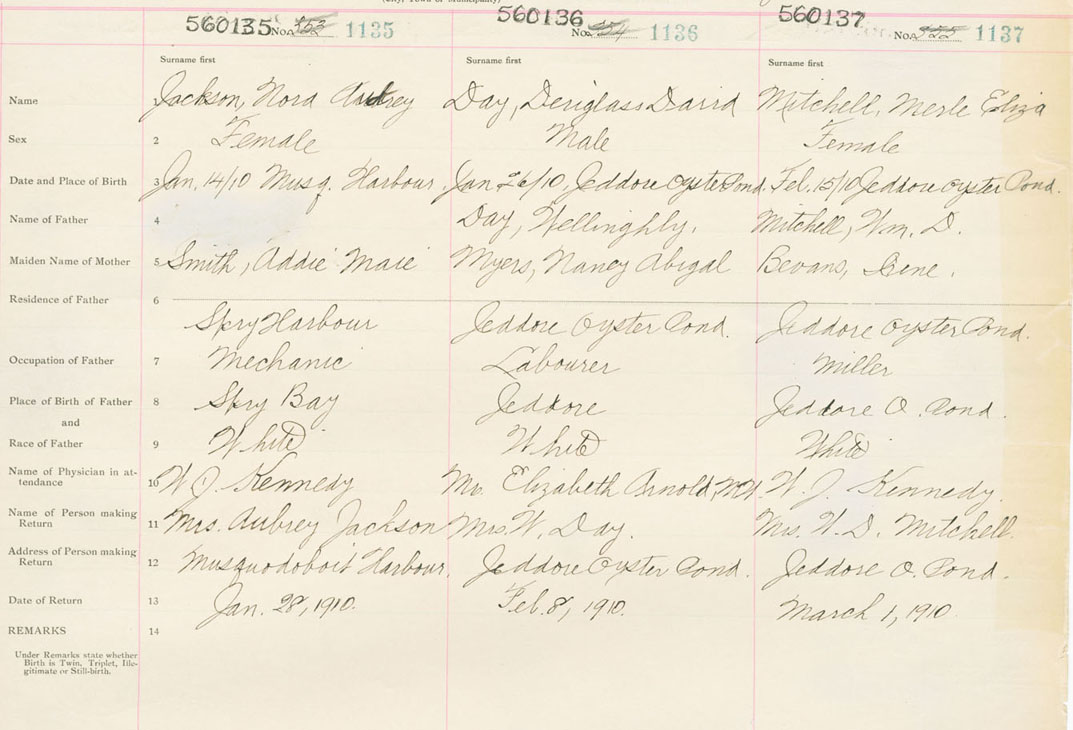 (City, Town or Municipality)
560135 No. A 353 1135 560136 No. A 354 1136 560137 No. A 355 1137
Surname first Surname first Surname first
Name 1 Jackson, Nora Aubrey Day, Deriglass David Mitchell, Merle Eliza
Sex 2 Female Male Female
Date and Place of Birth 3 Jan. 14/10 Musq. Harbour. Jan 26/10, Jeddore Oyster Pond. Feb. 15/10 Jeddore Oyster Pond.
Name of Father 4 Day, Wellinghly. Mitchell, Wm. D.
Maiden Name of Mother 5 Smith, Addie Maie Myers, Nancy Abigal Bevans, Irene.
Residence of Father 6
Spry Harbour Jeddore Oyster Pond. Jeddore Oyster Pond.
Occupation of Father 7 Mechanic Labourer Miller
Place of Birth of Father 8 Spry Bay Jeddore Jeddore O. Pond.
and
Race of Father 9 White White White
Name of Physician in at-
tendance 10 W. J. Kennedy Mrs. Elizabeth Arnold, W. J. Kennedy.
Name of Person making
Return 11 Mrs. Aubrey Jackson Mrs. W. Day. Mrs. W. D. Mitchell.
Address of Person making
Return 12 Musquodoboit Harbour. Jeddore Oyster Pond. Jeddore O. Pond.
Date of Return 13 Jan. 28, 1910. Feb. 8, 1910. March 1, 1910.
REMARKS 14
Under Remarks state whether
Birth is Twin, Triplet, Ille-
gitimate or Still-birth.